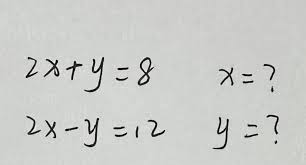 2x+y=8 x=?
2x-y=12 y=?